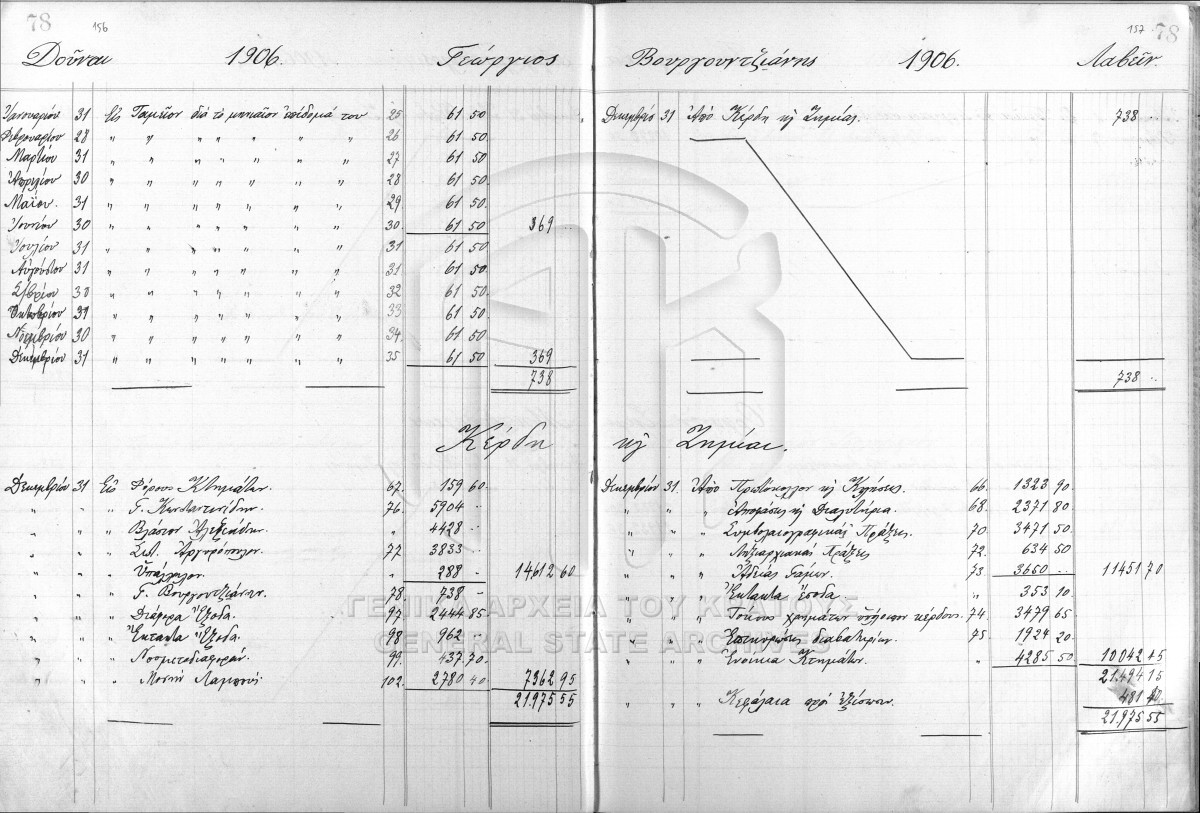 78 156
Δοῦναι 1906. Γεώργιος
Ἰανουαρίου 31 Εἰς Ταμεῖον διὰ τὸ μηνιαῖον ἐπίδομά του 25 61 50
Φεβρουαρίου 28 " " " " " " " 26 61 50
Μαρτίου 31 " " " " " " " 27 61 50
Ἀπριλίου 30 " " " " " " " 28 61 50
Μαΐου. 31 " " " " " " " 29 61 50
Ἰουνίου 30 " " " " " " " 30. 61 50 369
Ἰουλίου 31 " " " " " " " 31 61 50
Αὐγούστου 31 " " " " " " " 31 61 50
Σ/βρίου 30 " " " " " " " 32 61 50
Ὀκτωβρίου 31 " " " " " " " 33 61 50
Νοεμβρίου 30 " " " " " " " 34. 61 50
Δεκεμβρίου 31 " " " " " " " 35 61 50 369
738
Κέρδη
Δεκεμβρίου 31 Εἰς Φόρους Κτημάτων. 67. 159 60
" " " Γ. Κωνσταντινίδην. 76. 5904 --
" " " Βλάσιον Ἀλεξιάδην. " 4428 --
" " " Ἀργυρόπουλον. 77 3833 --
" " " Ὑπάλληλον. " 288 - 14612 60
" " " Γ. Βουργουντζιάνην. 78 738 -
" " " Διάφορα Ἔξοδα. 97 2444 85
" " " Ἔκτακτα Ἔξοδα. 98 962
" " " Νοσμιτοδιαφοράν. 99. 437 70
" " " Μονὴν 102. 2780 40 7362 95
21.975 55
157 78
Βουργουντζιάνης 1906. Λαβεῖν.
Δεκεμβρίου 31 Ἀπὸ Κέρδη κ Ζημίας. 738
738 --
κ Ζημίαι.
Δεκεμβρίου 31. Ἀπὸ Πρωτόκολλον κ Κλήσεις. 66. 1323 90
" " " Ἀποφάσεις κ Διαλυτήρια. 68. 2371 80
" " " Συμβολαιογραφικὰς Πράξεις. 70 3471 50
" " " Ληξιαρχικὰς Πράξεις 72. 634 50
" " " Ἀδείας Γάμων. 73 3660 -- 11451 70
" " " Ἔκτακτα Ἔσοδα " 353 10
" " " Τόκους χρημάτων κέρδους. 74 3479 65
" " " Ἐπικυρώσεις διαβατηρίων. 75. 1924 20
" " " Ἐνοίκια Κτημάτων. " 4285 50 10042 45
21.494 15
" " " Κεφάλαια πρὸς ἐξίσωσιν. 481 40
21.975 55
ΓΕΝΙΚΑ ΑΡΧΕΙΑ ΤΟΥ ΚΡΑΤΟΥΣ
GENERAL STATE ARCHIVES